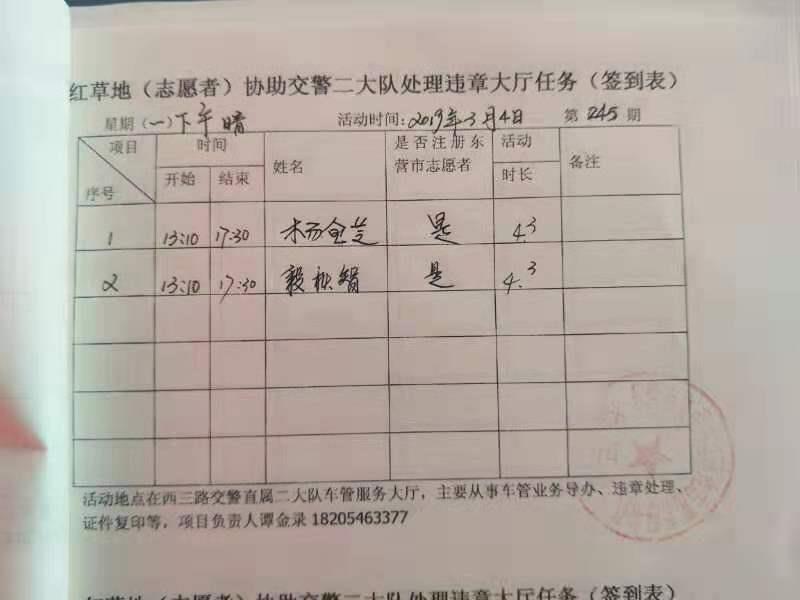 红草地（志愿者）协助交警二大队处理违章大厅任务（签到表）
星期（一）下午 晴 活动时间：2019年3月4日 第 245 期
项目 时间 姓名 是否注册东营市志愿者 活动时长 备注
序号 开始 结束
1 13:10 17:30 杨全芝 是 4.3
2 13:10 17:30 是 4.3
活动地点在西三路交警直属二大队车管服务大厅，主要从事车管业务导办、违章处理、
证件复印等，项目负责人谭金录 18205463377
红草地（志愿者）协助交警二大队处理违章大厅任务（签到表）